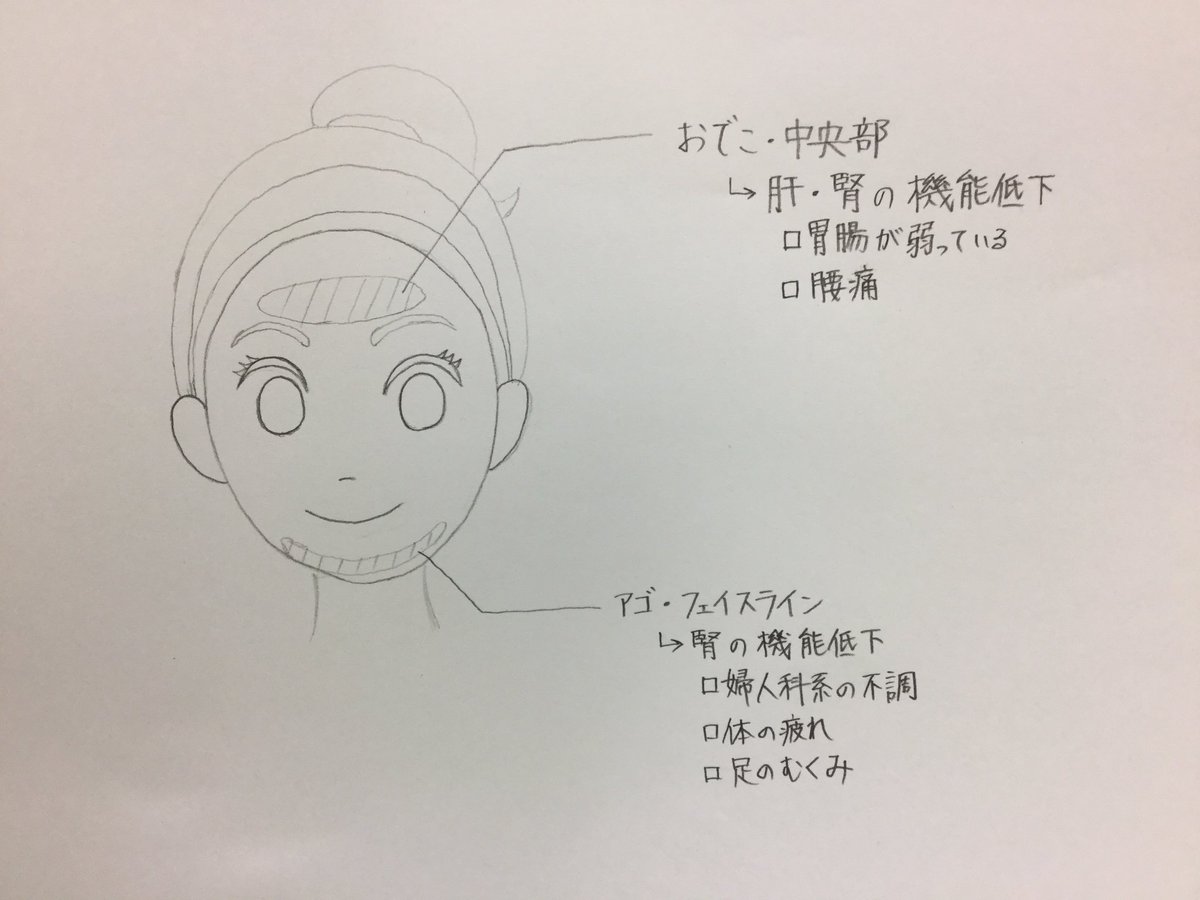 おでこ・中央部
↳肝・腎の機能低下
□胃腸が弱っている
□腰痛
アゴ・フェイスライン
↳腎の機能低下
□婦人科系の不調
□体の疲れ
□足のむくみ